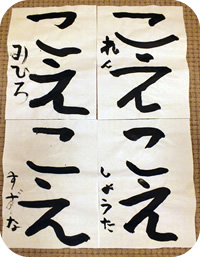 こえ
れん
こえ
みひろ
こえ
しょうた
こえ
すずな